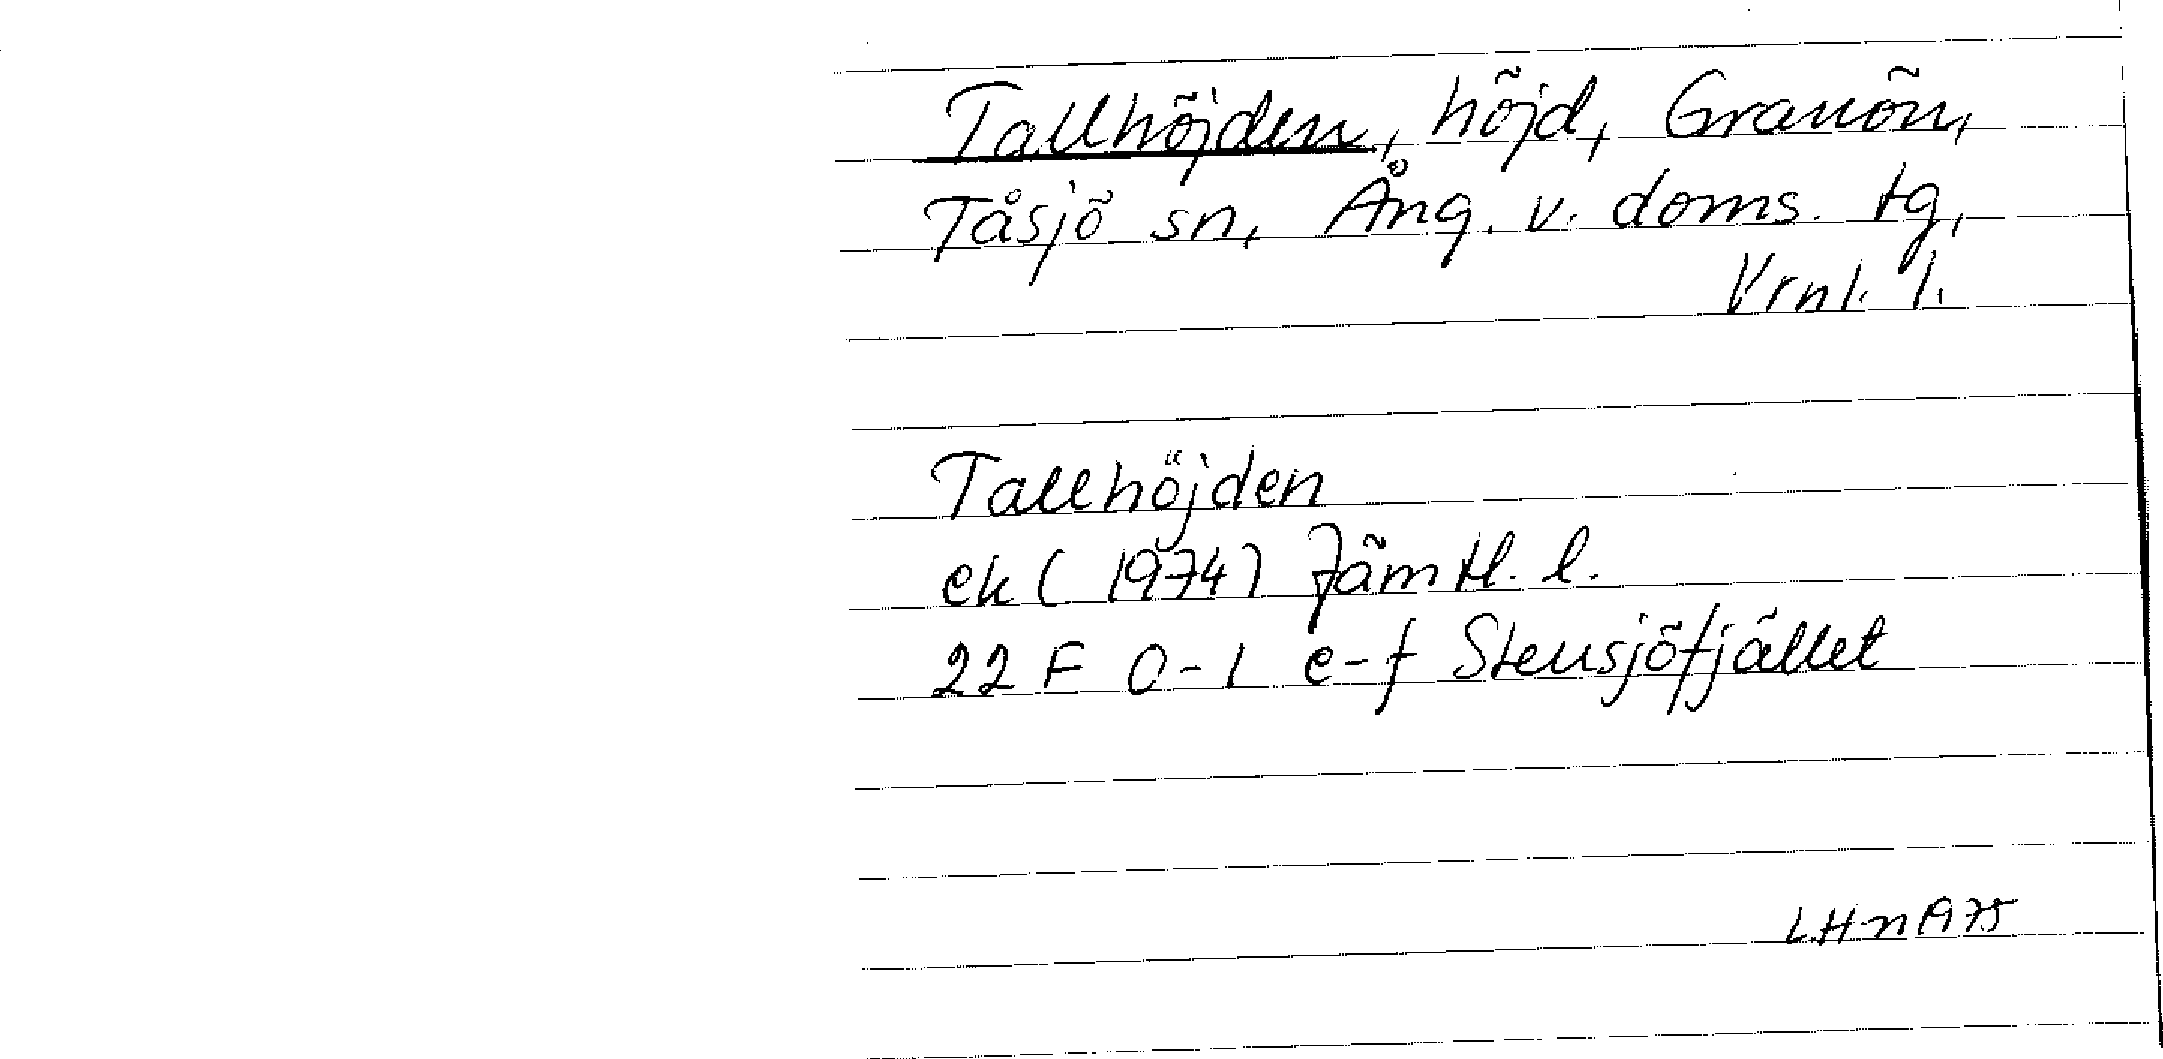 Tallhöjden, höjd, Granön,
Tåsjö sn, Ång. v. doms. tg,
Vrnl. l.
Tallhöjden
ek (1974) Jämtl. l.
22 F 0-1 e-f Stensjöfjället
LHn 1975